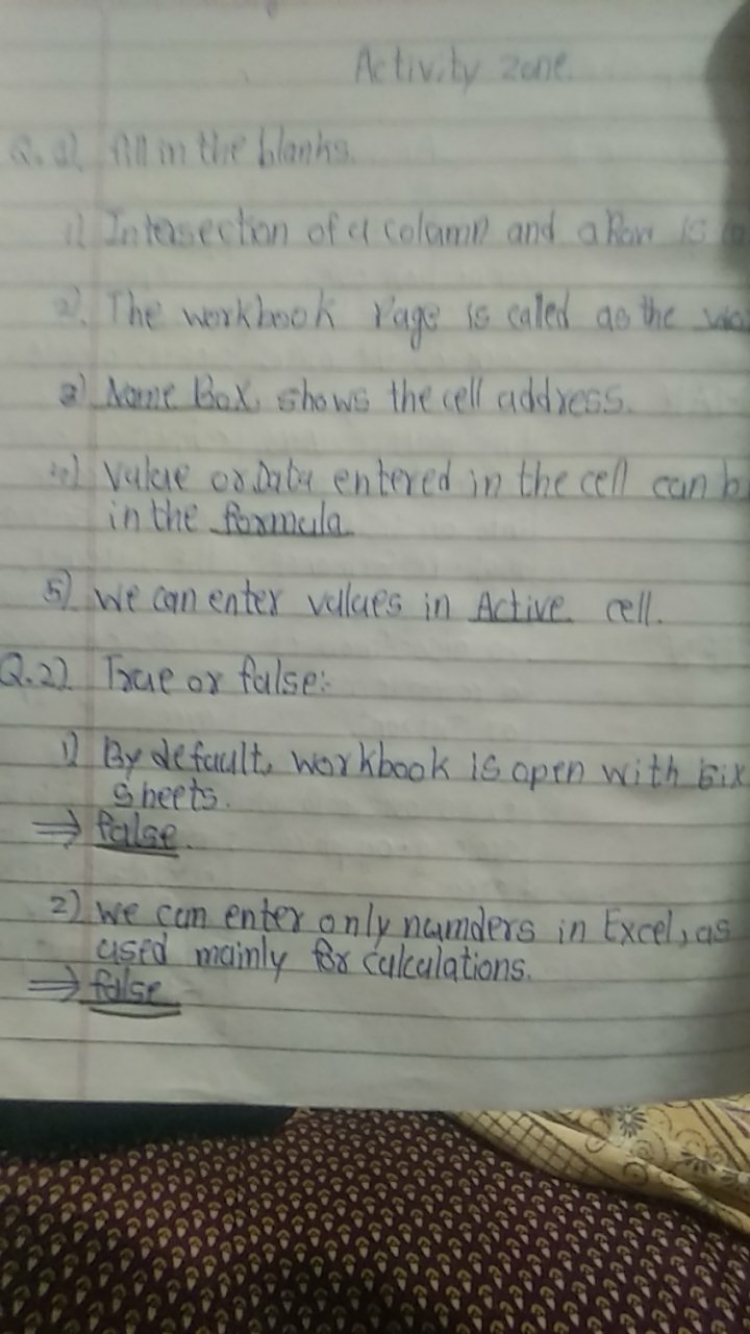 Activity zone.
Q.1) fill in the blanks.
1) Intersection of a column and a Row is
2). The workbook Page is called as the
3) Name Box, shows the cell address.
4) Value or Data entered in the cell can b
in the formula
5) we can enter values in Active cell.
Q.2) True or false:-
1) By default, workbook is open with six
sheets.
⇒ false.
2) we can enter only numders in Excel, as
used mainly for calculations.
⇒ false